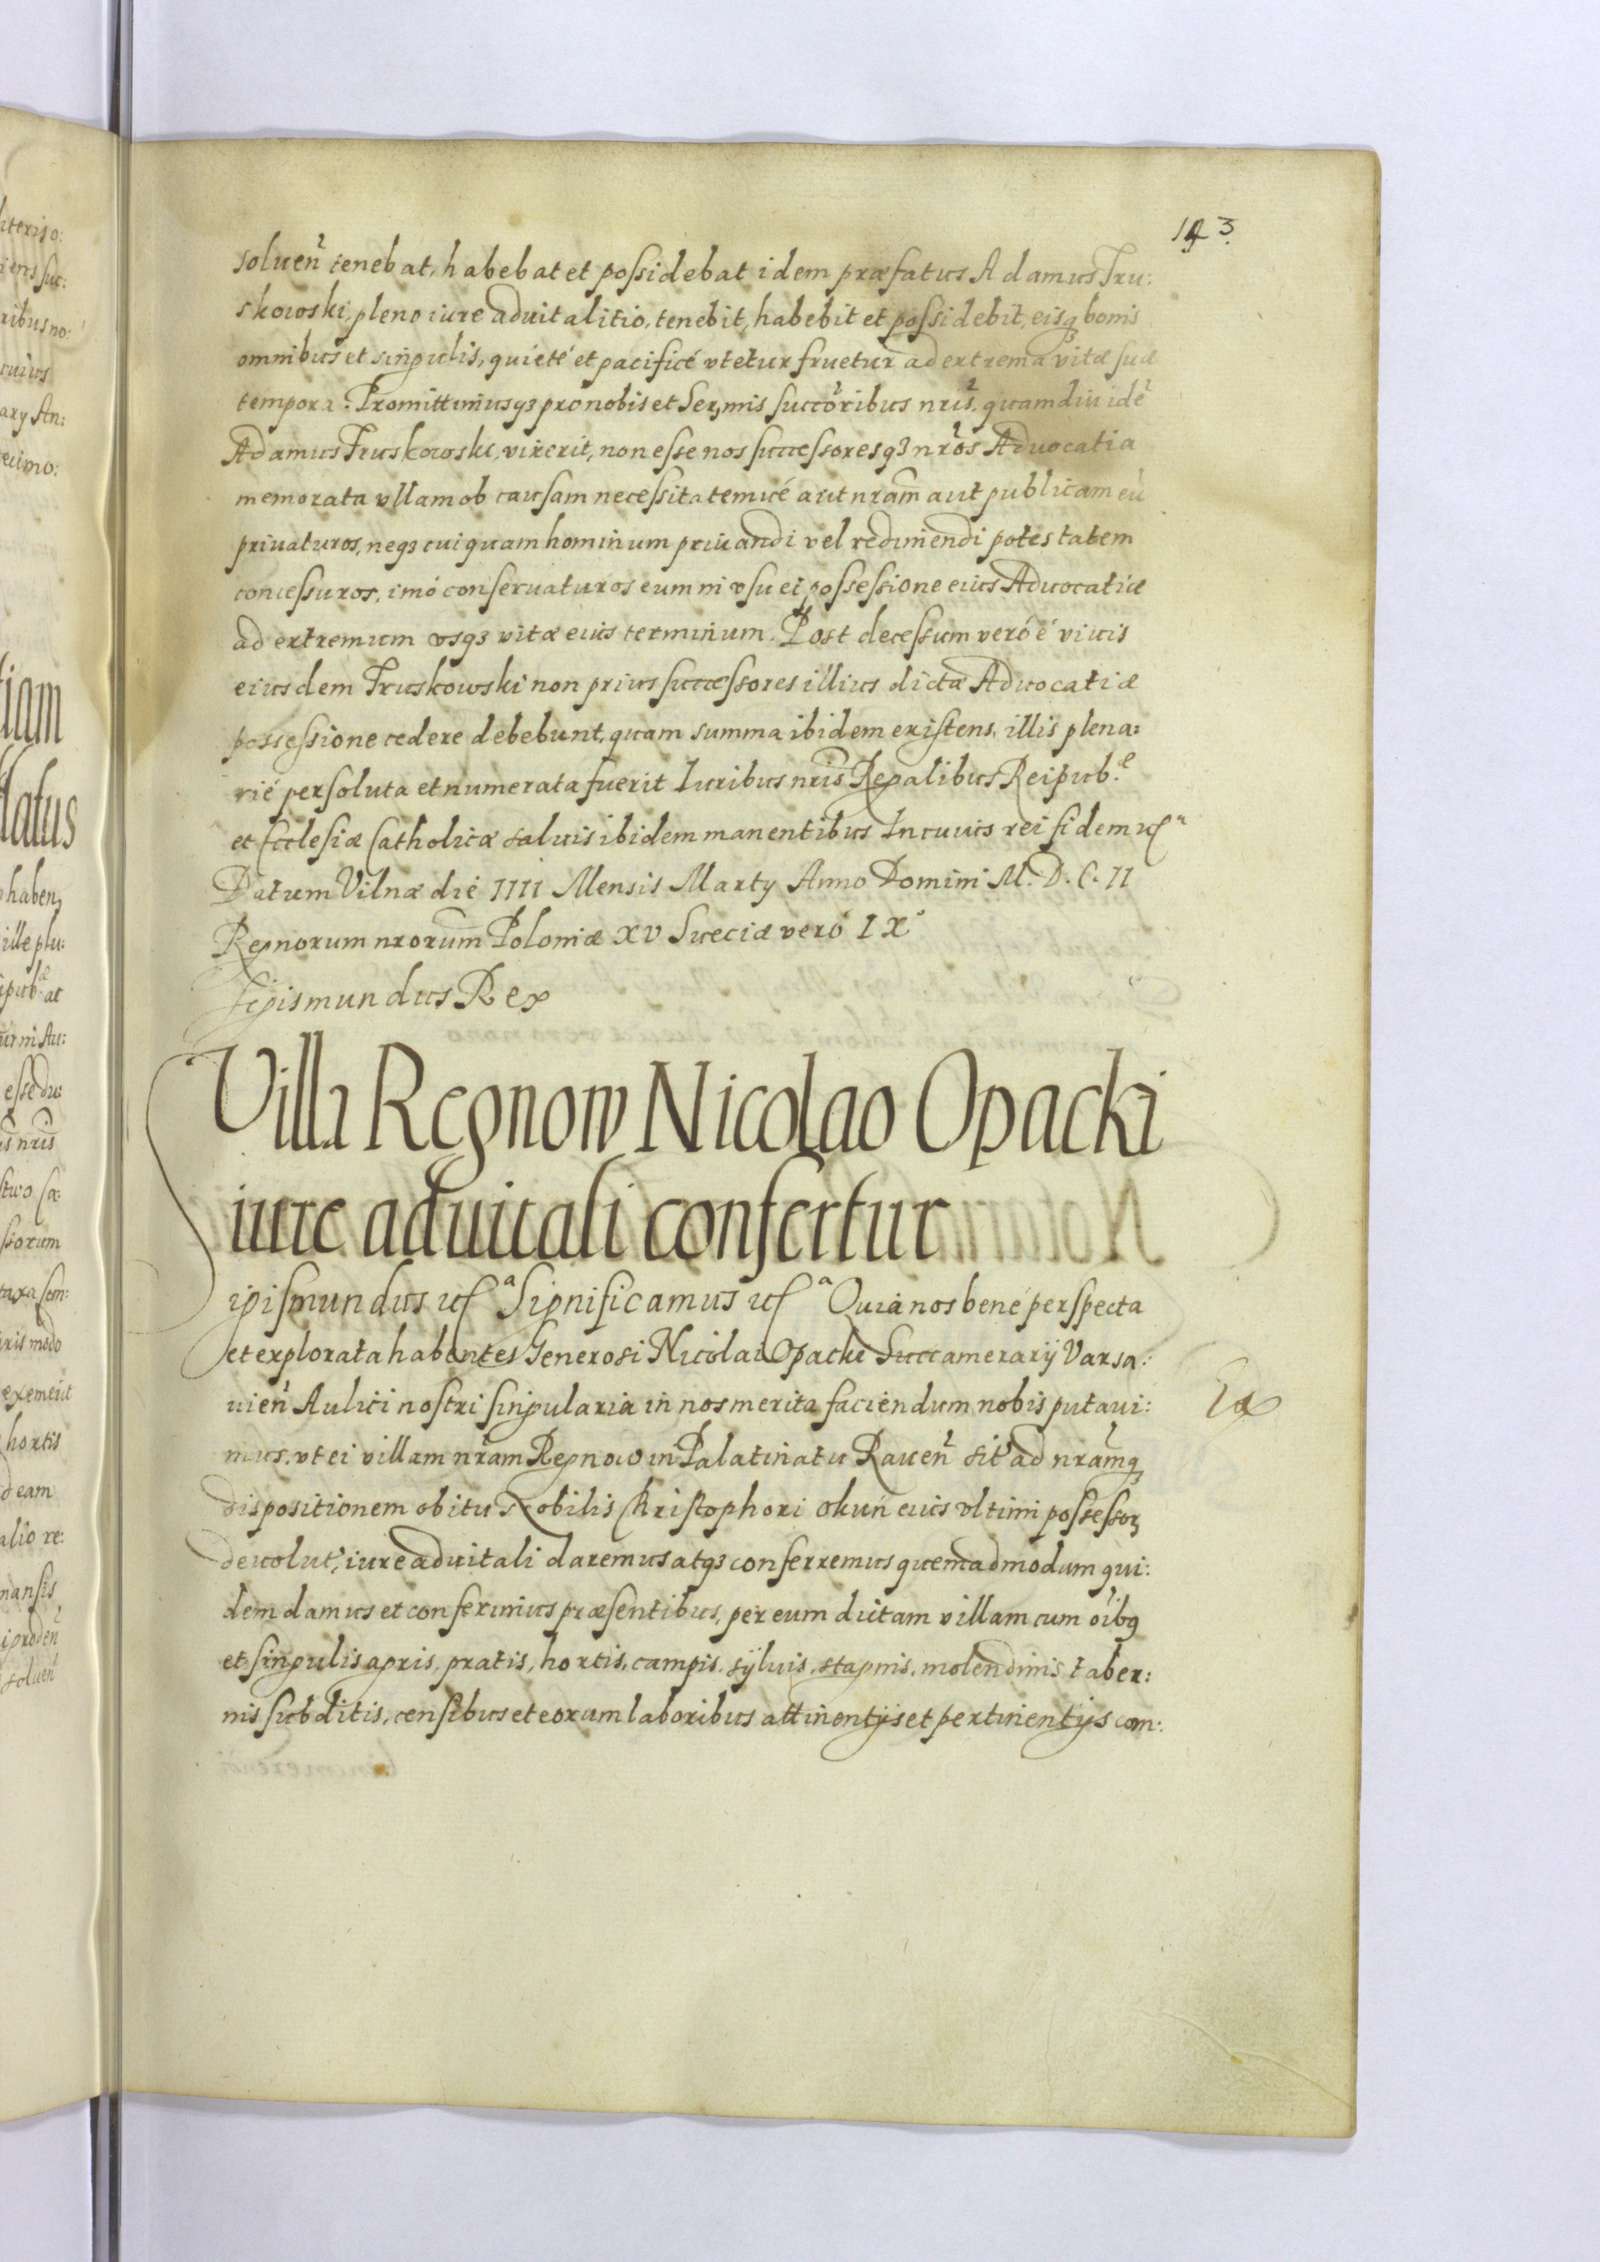 143.
soluen̄ tenebat, habebat et possidebat idem præfatus Adamus Tru:
skowski, pleno iure aduitalitio, tenebit, habebit et possidebit, eisq3 bonis
omnibus et singulis, quieté et pacificé vtetur fruetur ad extrema vitæ suæ
tempora. Promittimusq3 pro nobis et Ser,mis succōribus nrīs, quamdiu idē
Adamus Truskowski, vixerit, non esse nos successoresq3 nrōs Aduocatia
memorata vllam ob causam necessitatemué aut nrām aut publicam eū
priuaturos, neq3 cuiquam hominum priuandi vel redimendi potestatem
concessuros, imó conseruaturos eum in vsu et possessione eius Aduocatiæ
ad extremum vsq3 vitæ eius terminum. Post decessum veró é viuis
eiusdem Truskowski non prius successores illius dictæ Aduocatiæ
possessione cedere debebunt, quam summa ibidem existens, illis plena:
rié persoluta et numerata fuerit Iuribus nrīs Regalibus Reipub.e
et Ecclesiæ Catholicæ saluis ibidem manentibus In cuius rei fidem ec a
Datum Vilnæ dié IIII Mensis Marty Anno Domini M. D. C. II
Regnorum nrorūm Poloniæ XV Sueciæ veró IX°
Sigismundus Rex
Villa Regnow Nicolao Opacki
iure aduitali confertur
Sigismundus ec a Significamus ec a Quia nos bené perspecta
et explorata habentes Generosi Nicolai Opacki Succamerarij Varsa:
uien̄ Aulici nostri singularia in nos merita faciendum nobis putaui:
mus, vt ei villam nrām Regnow in Palatinatu Rauen̄ sit̄ ad nrāmq3
dispositionem obitu Nobilis Christophori Okuń eius vltimi possessor3
deuolut̄, iure aduitali daremus atq3 conferremus quemadmodum qui:
dem damus et conferimus præsentibus, per eum dictam villam cum oībq
et singulis agris, pratis, hortis, campis, syluis, stagnis, molendinis, taber:
nis subditis, censibus et eorum laboribus attinentijs et pertinentijs com: